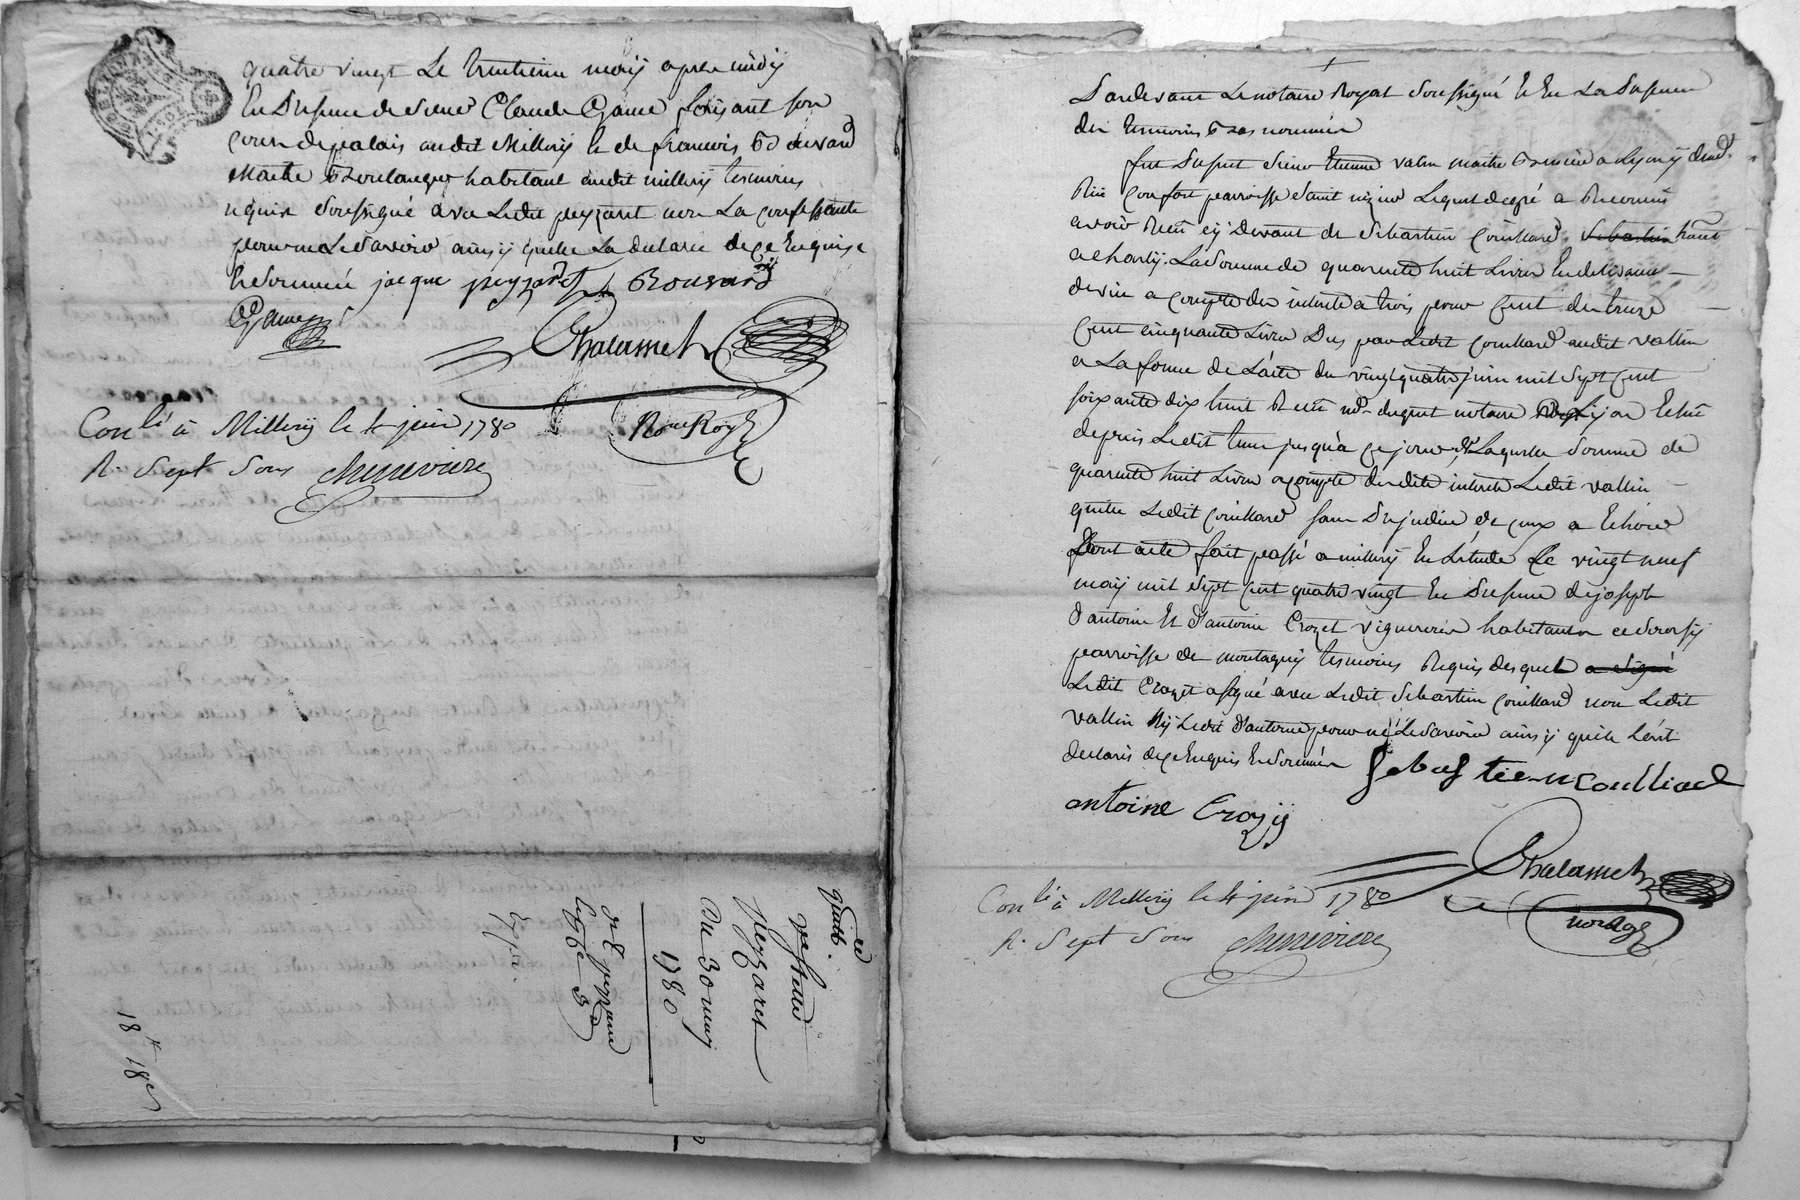 quatre vingt Le trentieme may apres midy
En presence de sieur Claude Game faisant son
cours de palais audit Millery Et de francois Bouvard
Maitre Boulanger habitant audit millery temoins
requis soussigné avec Ledit peyzaret non La confessante
pour ne Le savoir ainsy quelle La declaré de ce Enquise
Et sommée jacque peyzaret Bouvard
Game
Chalamel
Not. Roy.
Conlé à Millery le 4 juin 1780
R. Sept Sous Cheneviere
quitt.
peyzaret
Du 30 may
1780
Exp.
18 18
Pardevant Le notaire Royal soussigné Et En La presence
des temoins bas nommés
fut present sieur Etienne valin maitre a Lyon y dem.
Rue confort parroisse saint nizier Lequel de gré a Reconnu
avoir Reçu cy Devant de Sebastien couillard Sebastien
a charly La somme de quarante huit Livres
a compte des interets a trois pour cent de treize
cent cinquante Livres Dus par Ledit couillard audit vallin
a La forme de L'acte du vingt quatre juin mil sept cent
soixante dix huit Reçu notaire a Lyon Echu
depuis Ledit tems jusqu'a ce jour De Laquelle somme de
quarante huit Livres a compte desdits interets Ledit vallin
quitte Ledit couillard sans prejudice de ceux a Echoir
Dont acte fait passé a millery En L'etude Le vingt neuf
may mil sept cent quatre vingt En presence de joseph
d'antoine Et d'antoine Crozet vignerons habitants
parroisse de montagny temoins Requis desquels a signé
Ledit Crozet a signé avec Ledit Sebastien couillard non Ledit
vallin Ny Ledit d'antoine pour ne Le savoir ainsy qu'ils L'ont
declaré de ce Enquis Et sommés Sebastien coulliard
antoine Crozy
Chalamel
not. Roy.
Conlé à Millery le 4 juin 1780
R. Sept Sous Cheneviere